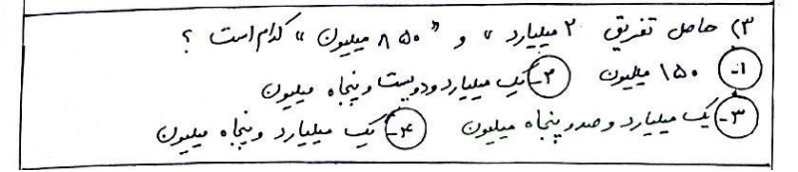 ۳) حاصل تفریق " ۲ میلیارد " و " ۸۵۰ میلیون " کدام است ؟
۱- ۱۵۰ میلیون ۲- یک میلیارد و دویست و پنجاه میلیون
۳- یک میلیارد و صد و پنجاه میلیون ۴- یک میلیارد و پنجاه میلیون